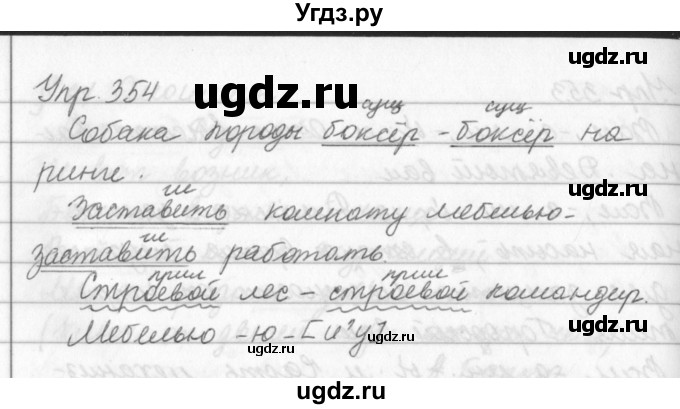 Угдз.ру
ugdz.ru
ugdz.ru
Упр. 354
ugdz.ru
сущ сущ
Собака породы боксёр - боксёр на
ринге.
ugdz.ru
гл
Заставить комнату мебелью-
гл
заставить работать.
ugdz.ru
прил прил
Строевой лес - строевой командир.
ugdz.ru
ugdz.ru
Мебелью - ю - [й'у]
ugdz.ru
ugdz.ru
ugdz.ru